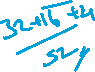 32+16+4
52y